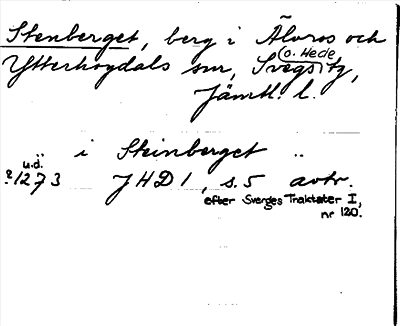 Stenberget, berg i Älvros och
Ytterhogdals snr, Svegs (o. Hede) tg,
Jämtl. l.
" i Steinberget "
u.d.
?1273 JHD 1, s. 5 avtr.
efter Sverges Traktater I,
nr 120.